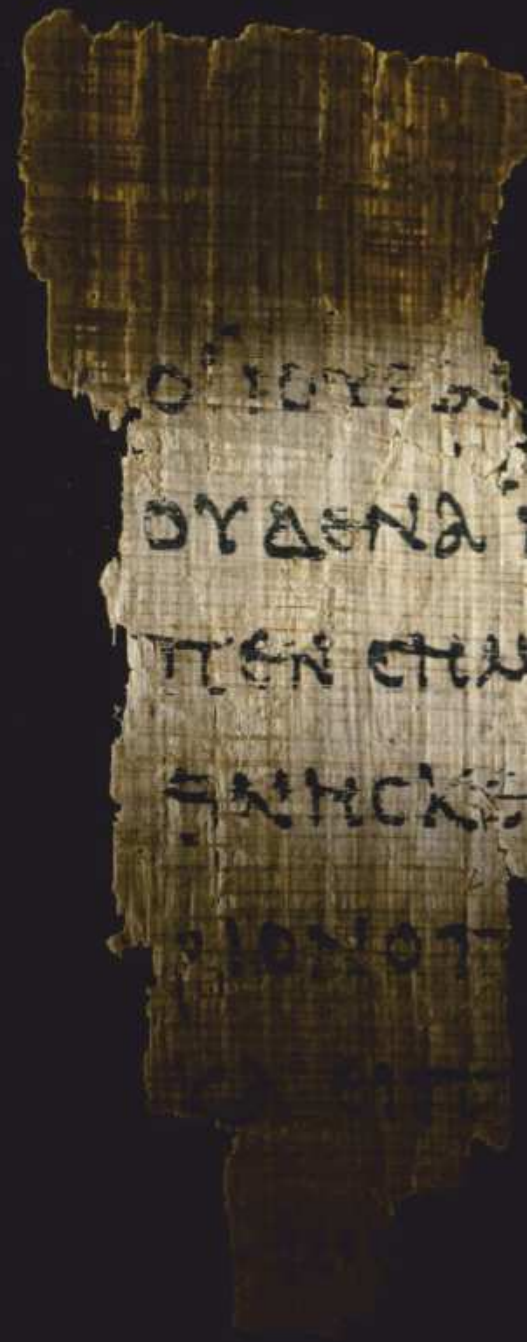 ΟΙ ΙΟΥΔΑΙ
ΟΥΔΕΝΑ Ι
ΠΕΝ CΗΜ
ΘΝΗCΚΕ
ΡΙΟΝ Ο Π